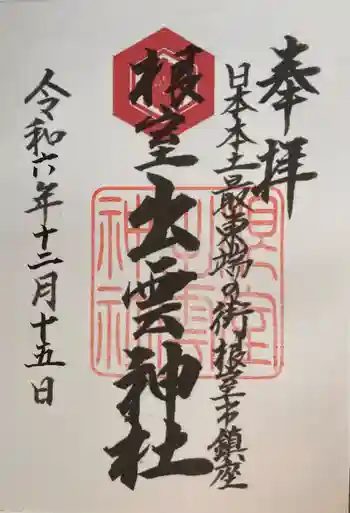 奉拝
日本本土最東端の街根室市鎮座
根室出雲神社
令和六年十二月十五日
根室出雲神社